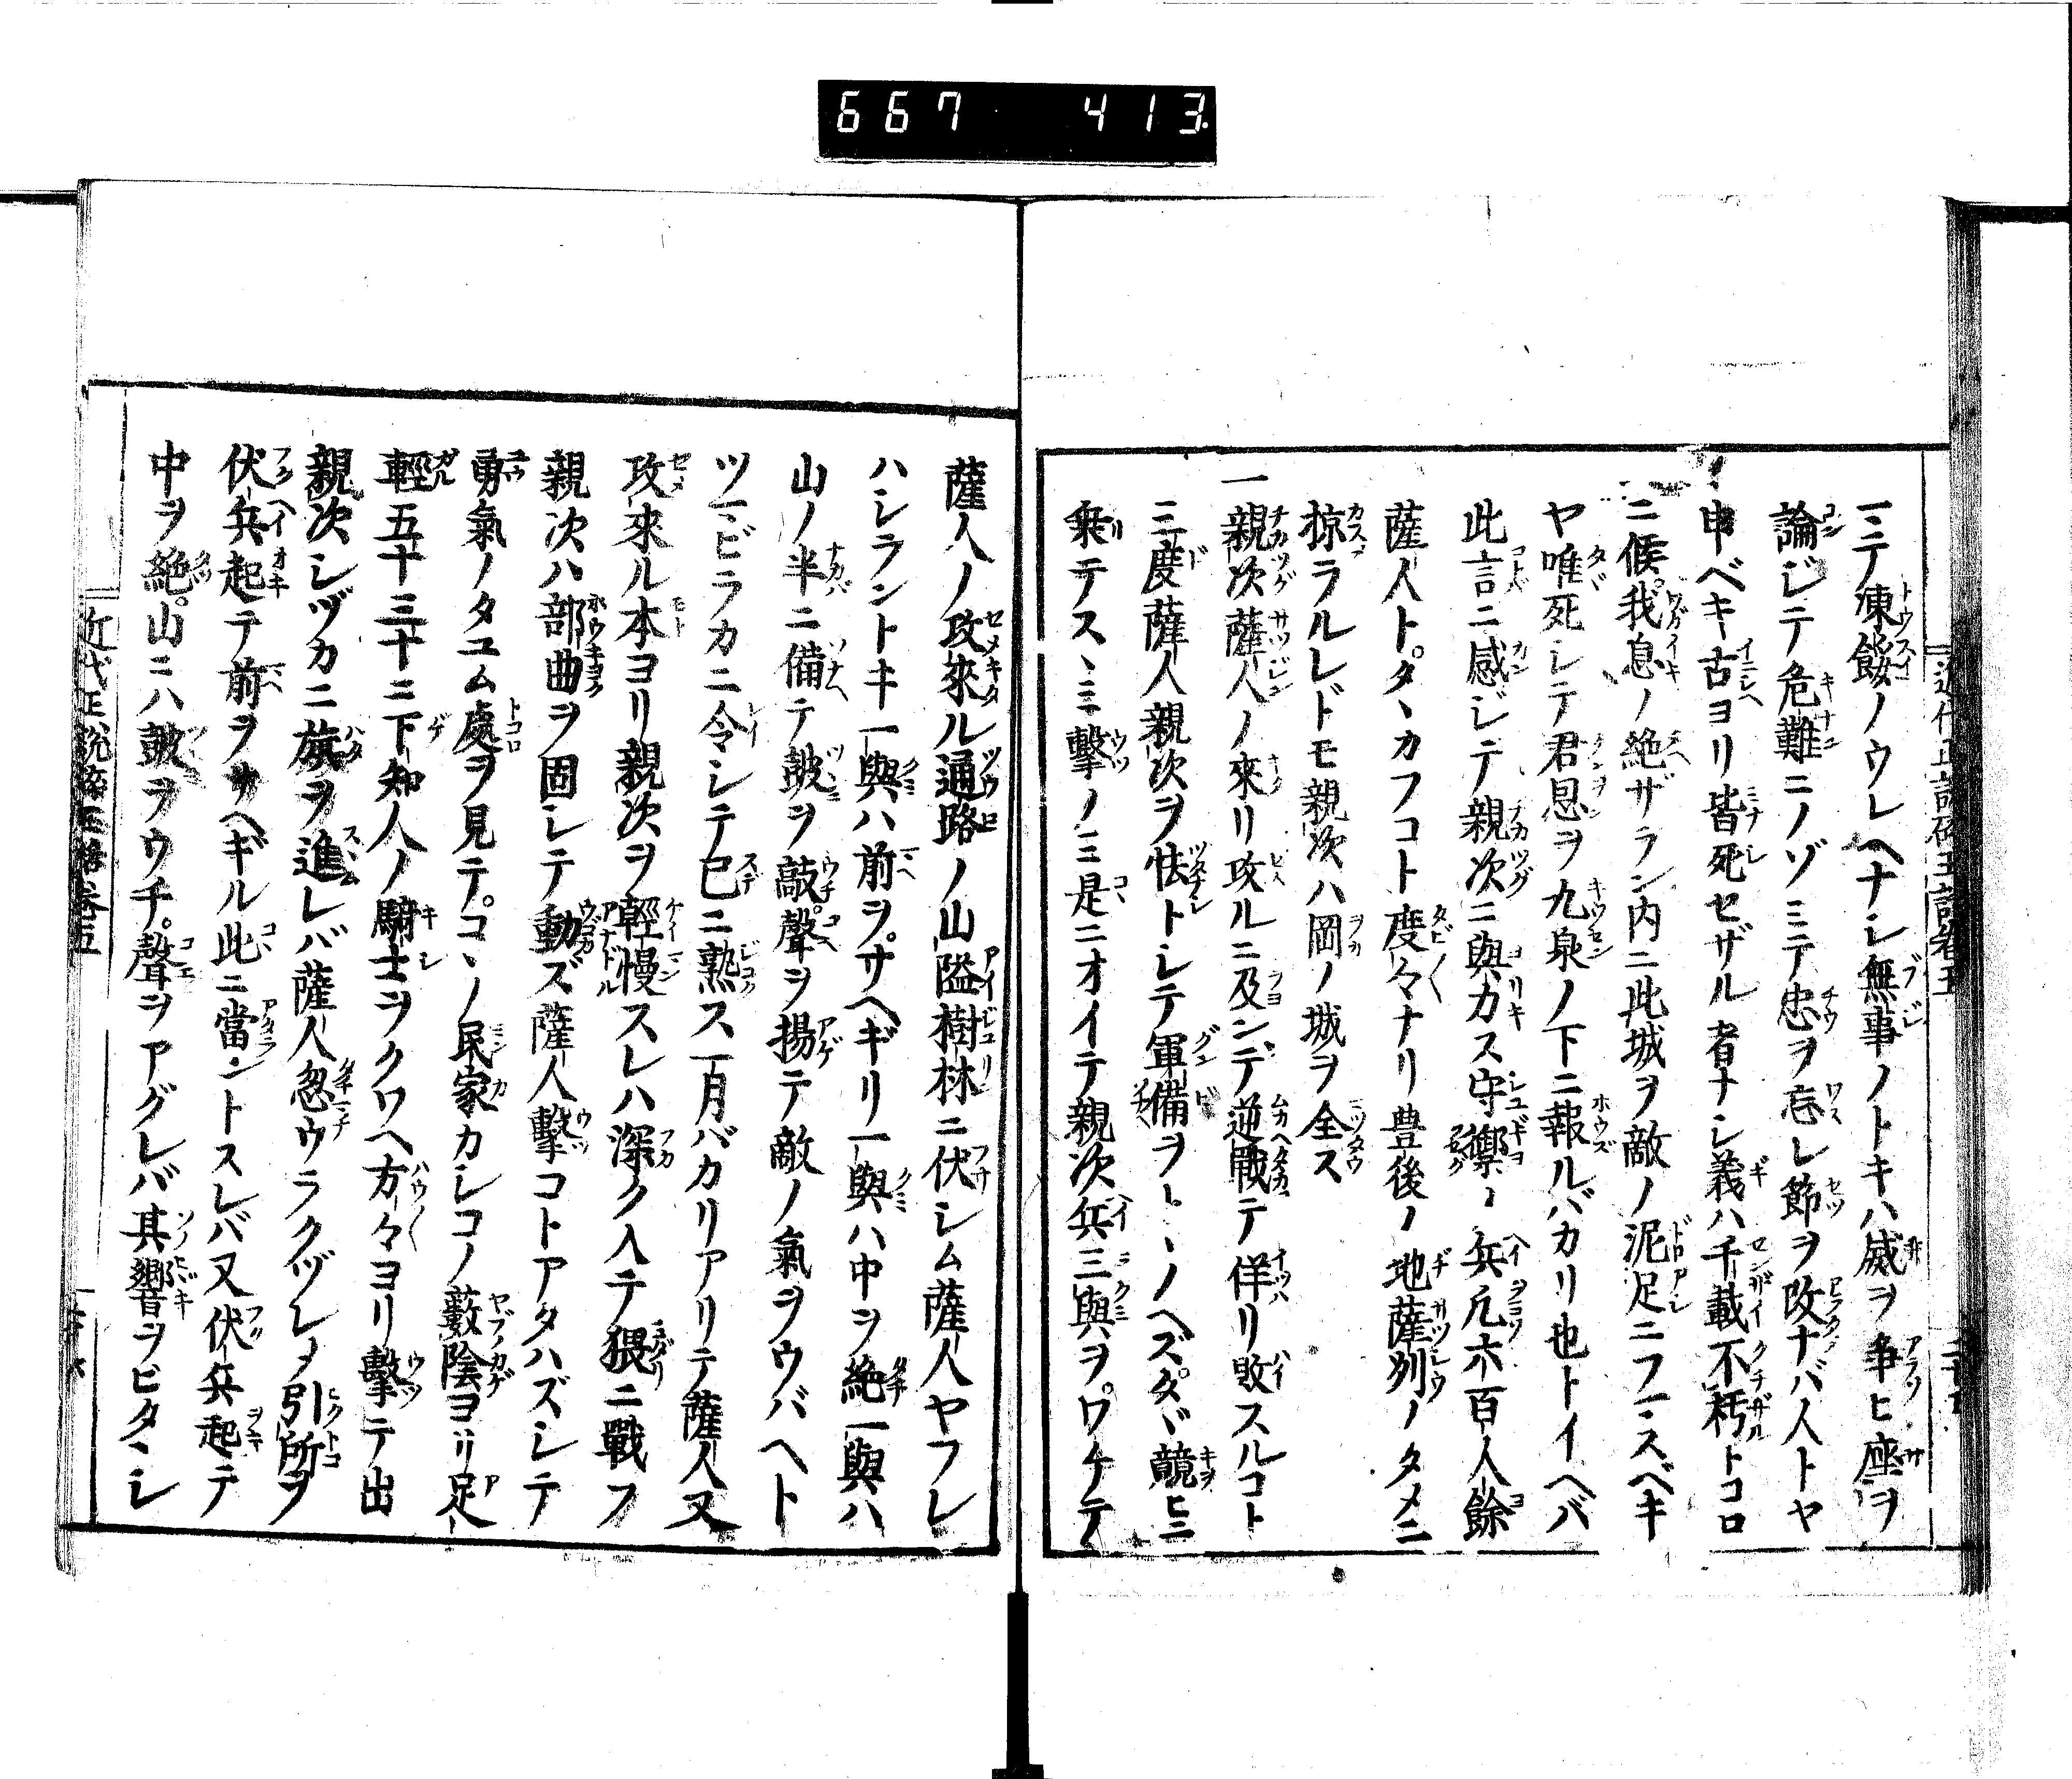 667 413.
ミテ凍餒ノウレヘナシ無事ノトキハ威ヲ爭ヒ座ヲ
論ジテ危難ニノゾミテ忠ヲ忘レ節ヲ改ナバ人トヤ
申ベキ古ヨリ皆死セザル者ナシ義ハ千載不朽トコロ
ニ候我息ノ絶ザラン内ニ此城ヲ敵ノ泥足ニフマスベキ
ヤ唯死シテ君恩ヲ九泉ノ下ニ報ルバカリ也トイヘバ
此言ニ感ジテ親次ニ與力ス守禦ノ兵凡六百人餘
薩人トタヽカフコト度々ナリ豊後ノ地薩州ノタメニ
掠ラルレドモ親次ハ岡ノ城ヲ全ス
一親次薩人ノ來リ攻ルニ及ンデ逆戰テ佯リ敗スルコト
三度薩人親次ヲ怯トシテ軍備ヲトヽノヘズタヾ競ヒ三
乗テスヽミ擊ノミ是ニオイテ親次兵三與ヲワケテ
薩人ノ攻來ル通路ノ山隘樹林ニ伏シム薩人ヤフレ
ハシラントキ一與ハ前ヲサヘギリ一與ハ中ヲ絶一與ハ
山ノ半ニ備テ鼓ヲ敲聲ヲ揚テ敵ノ氣ヲウバヘト
ツマビラカニ令シテ已ニ熟ス一月バカリアリテ薩人又
攻來ル本ヨリ親次ヲ輕慢スレハ深ク入テ猥ニ戰フ
親次ハ部曲ヲ固シテ動ズ薩人擊コトアタハズシテ
勇氣ノタユム處ヲ見テコヽノ民家カシコノ藪陰ヨリ足
輕五十三十ニ下知人ノ騎士ヲクワヘ方々ヨリ擊テ出
親次シヅカニ旗ヲ進レバ薩人忽ウラクヅレメ引所ヲ
伏兵起テ前ヲサヘギル此ニ當ントスレバ又伏兵起テ
中ヲ絶山ニハ鼓ヲウチ聲ヲアグレバ其響ヲビタヽシ